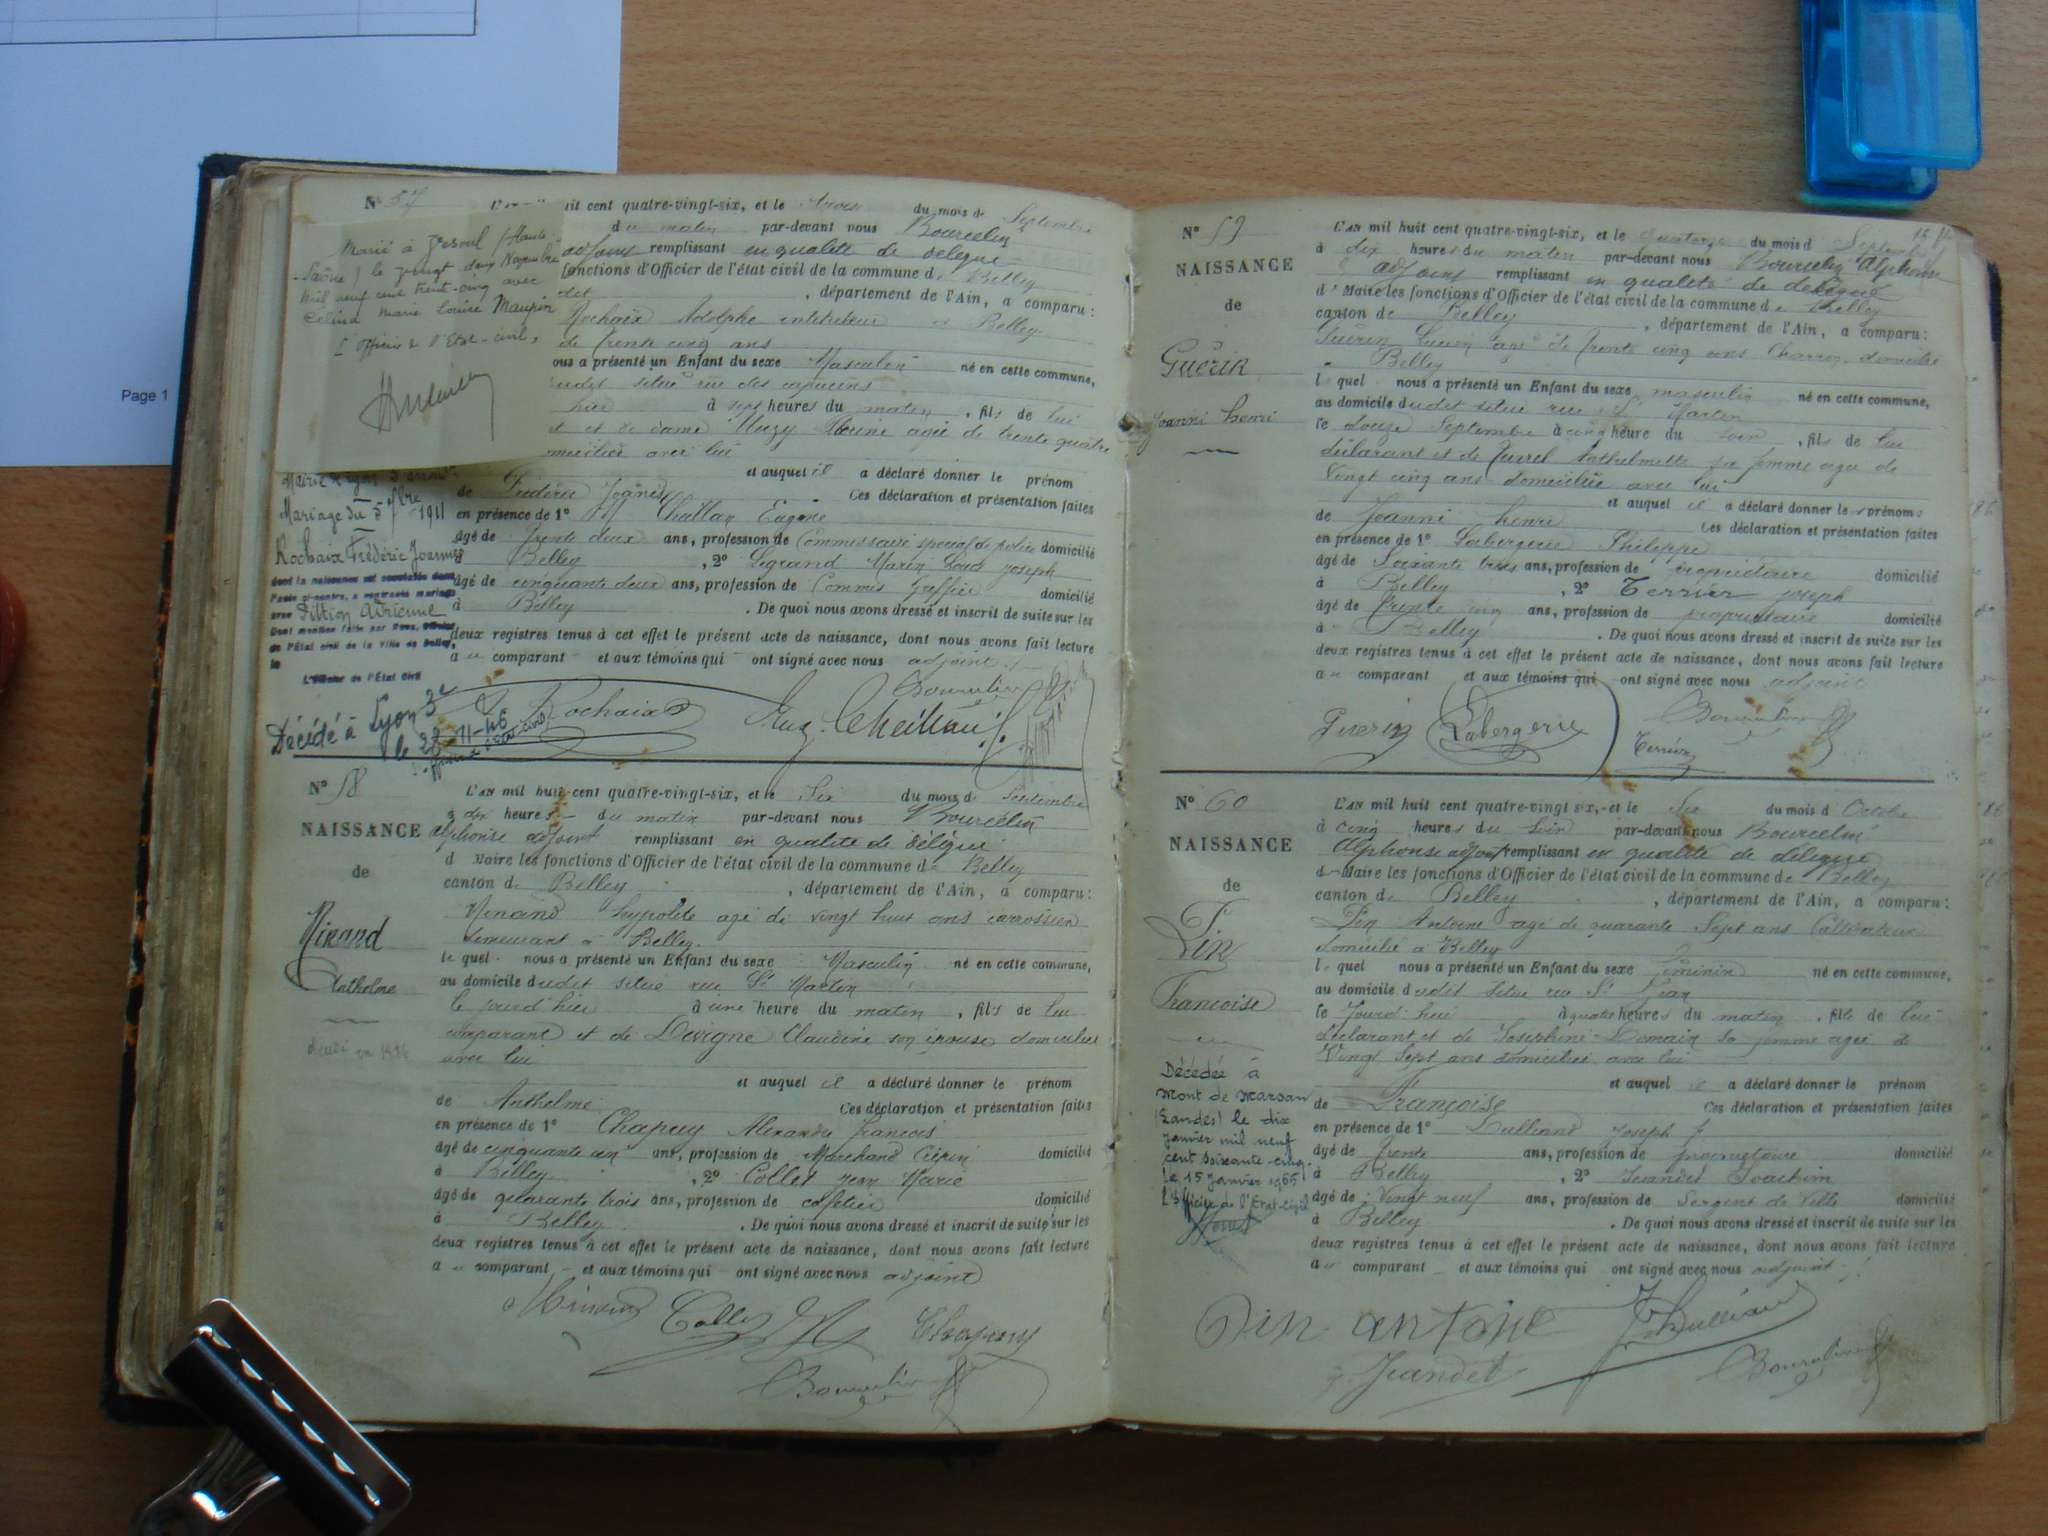 Page 1
N° 57
cent quatre-vingt-six, et le trois du mois de Septembre
du matin par-devant nous Bourcelin
adjoint remplissant en qualité de délégué
fonctions d'Officier de l'état civil de la commune de Belley
, département de l'Ain, a comparu :
Rochaix Adolphe à Belley
de trente cinq ans
ous a présenté un Enfant du sexe Masculin né en cette commune,
udit situé rue des capucins
hier à sept heures du matin, fils de lui
et de dame Muzy agée de trente quatre
avec lui
et auquel il a déclaré donner le prénom
de Frédéric Joanès Ces déclaration et présentation faites
en présence de 1° Eugène
âgé de trente deux ans, profession de Commissaire spécial de police domicilié
à Belley, 2° Legrand Marin Louis Joseph
âgé de cinquante deux ans, profession de Commis Greffier domicilié
à Belley. De quoi nous avons dressé et inscrit de suite sur les
deux registres tenus à cet effet le présent acte de naissance, dont nous avons fait lecture
au comparant et aux témoins qui ont signé avec nous adjoint
Marié à Vesoul (Haute-
Saône) le vingt deux Novembre
mil neuf cent trente-cinq avec
Célina Marie Louise Maupin
L'Officier de l'Etat-civil,
Mariage du 5 1911
Rochaix Frédéric Joannès
dont la naissance est constatée dans
l'acte ci-contre, a contracté mariage
avec Pittion Adrienne
Dont mention faite par Nous, Officier
de l'État civil de la Ville de Belley,
le
L'Officier de l'État Civil
Décédé à Lyon 3e
le 28-11-46
Rochaix
Bourcelin
N° 58
NAISSANCE
de
Minand
Anthelme
L'AN mil huit cent quatre-vingt-six, et le Six du mois de Septembre
à dix heures du matin par-devant nous Bourcelin
Alphonse adjoint remplissant en qualité de délégué
d Maire les fonctions d'Officier de l'état civil de la commune de Belley
canton de Belley, département de l'Ain, a comparu :
Minand hypolite agé de vingt huit ans carrossier
demeurant à Belley
lequel nous a présenté un Enfant du sexe Masculin né en cette commune,
au domicile dudit situé rue St Martin
le jour d'hier à une heure du matin, fils de lui
comparant et de Devigne Claudine son épouse domiciliée
avec lui
et auquel il a déclaré donner le prénom
de Anthelme Ces déclaration et présentation faites
en présence de 1° Chapuy Alexandre François
âgé de cinquante un ans, profession de Marchand domicilié
à Belley, 2° Collet Jean Marie
âgé de quarante trois ans, profession de cafetier domicilié
à Belley. De quoi nous avons dressé et inscrit de suite sur les
deux registres tenus à cet effet le présent acte de naissance, dont nous avons fait lecture
au comparant et aux témoins qui ont signé avec nous adjoint
Minand Collet Chapuy
Bourcelin
N° 59
NAISSANCE
de
Guérin
Joanni henri
L'AN mil huit cent quatre-vingt-six, et le quatorze du mois d Septembre
à dix heures du matin par-devant nous Bourcelin Alphonse
adjoint remplissant en qualité de délégué
d Maire les fonctions d'Officier de l'état civil de la commune de Belley
canton de Belley, département de l'Ain, a comparu :
Guérin Lucien agé de trente cinq ans Charron domicilié
à Belley
lequel nous a présenté un Enfant du sexe masculin né en cette commune,
au domicile dudit situé rue St Martin
le douze Septembre à cinq heure du soir, fils de lui
déclarant et de Anthelmette sa femme agée de
vingt cinq ans domiciliée avec lui
et auquel il a déclaré donner le prénoms
de Joanni henri Ces déclaration et présentation faites
en présence de 1° Labergerie Philippe
âgé de Soixante trois ans, profession de propriétaire domicilié
à Belley, 2° Terrier joseph
âgé de trente cinq ans, profession de propriétaire domicilié
à Belley. De quoi nous avons dressé et inscrit de suite sur les
deux registres tenus à cet effet le présent acte de naissance, dont nous avons fait lecture
au comparant et aux témoins qui ont signé avec nous adjoint
Guerin Labergerie Bourcelin
Terrier
N° 60
NAISSANCE
de
Din
Françoise
Décédée à
Mont de Marsan
(Landes) le dix
janvier mil neuf
cent soixante-cinq.
Le 15 janvier 1965
L'Officier de l'Etat-civil
L'AN mil huit cent quatre-vingt six, et le Six du mois d Octobre
à cinq heures du soir par-devant nous Bourcelin
Alphonse adjoint remplissant en qualité de délégué
d Maire les fonctions d'Officier de l'état civil de la commune de Belley
canton de Belley, département de l'Ain, a comparu :
Din Antoine agé de quarante Sept ans Cultivateur
domicilié à Belley
lequel nous a présenté un Enfant du sexe féminin né en cette commune,
au domicile dudit situé rue St Jean
le jourd'hui à quatre heures du matin, fille de lui
déclarant et de Joséphine Romain sa femme agée de
Vingt Sept ans domiciliée avec lui
et auquel il a déclaré donner le prénom
de Françoise Ces déclaration et présentation faites
en présence de 1° Dulliand joseph
âgé de trente ans, profession de propriétaire domicilié
à Belley, 2° Jeandet Joachim
âgé de Vingt neuf ans, profession de Sergent de Ville domicilié
à Belley. De quoi nous avons dressé et inscrit de suite sur les
deux registres tenus à cet effet le présent acte de naissance, dont nous avons fait lecture
au comparant et aux témoins qui ont signé avec nous adjoint
Din antoine Dulliand
Jeandet Bourcelin